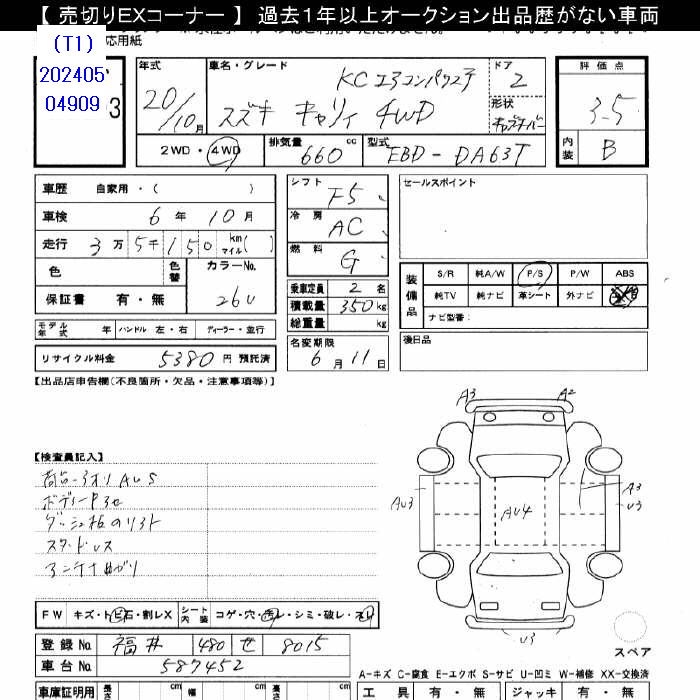 【 売切りEXコーナー 】 過去1年以上オークション出品歴がない車両
応用紙
(T1)
202405
04909
3
年式
20/10月
車名・グレード
KCエアコンパワステ
スズキ キャリィ 4WD
ドア
2
形状
評価点
3.5
内装
B
2WD・4WD
排気量
660 cc
型式
EBD-DA63T
車歴 自家用・( )
車検 6年 10月
走行 3万5千150 km マイル( )
色
色替
カラーNo.
26U
保証書 有・無
モデル年式 年
ハンドル 左・右
ディーラー・並行
リサイクル料金 5380 円 預託済
シフト
F5
冷房
AC
燃料
G
乗車定員 2 名
積載量 350 kg
総重量 kg
名変期限
6月11日
セールスポイント
装備品
S/R 純A/W P/S P/W ABS
純TV 純ナビ 革シート 外ナビ
ナビ型番:
後日品
【出品店申告欄(不良箇所・欠品・注意事項等)】
【検査員記入】
スタッドレス
アンテナ曲がり
A3
A2
AU3
AU4
A3
U3
U3
スペア
FW キズ・トビ石・割レX
シート内装
コゲ・穴・汚レ・シミ・破レ・スレ
登録No. 福井 480 せ 8015
車台No. 587452
A-キズ C-腐食 E-エクボ S-サビ U-凹ミ W-補修 XX-交換済
車庫証明用 長さ cm 幅 cm 高さ cm
工具 有・無 ジャッキ 有・無